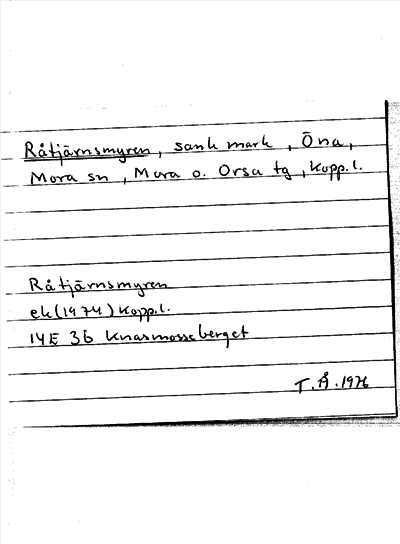 Råtjärnsmyren, sank mark, Öna,
Mora sn, Mora o. Orsa tg, Kopp.l.
Råtjärnsmyren
ek (1974) Kopp.l.
14E 3b Knasmosseberget
T.Å. 1976